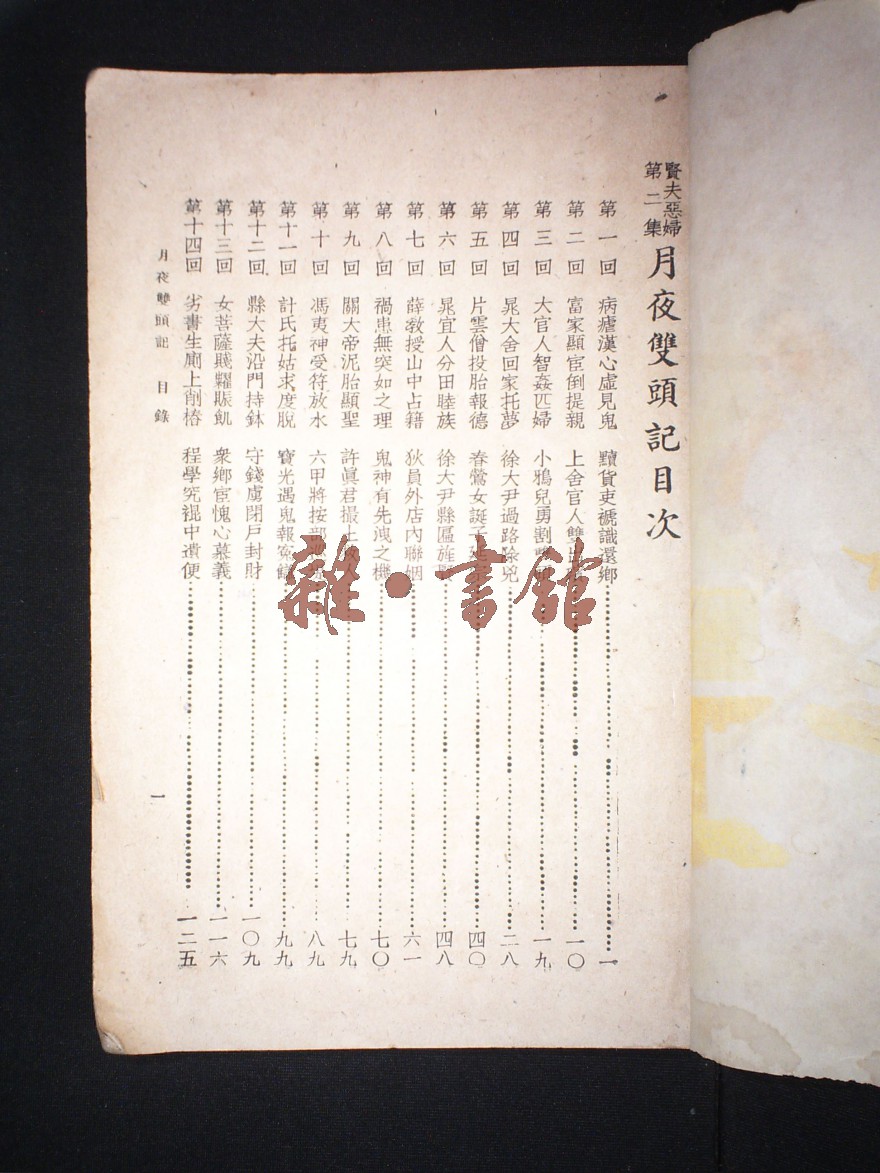 賢夫惡婦
第二集
月夜雙頭記目次
第一回 病瘧漢心虛見鬼 黷貨吏褫識還鄉 一
第二回 富家顯宦倒提親 上舍官人雙出 一〇
第三回 大官人智姦匹婦 小鴉兒勇割 一九
第四回 晁大舍回家托夢 徐大尹過路除兇 二八
第五回 片雲僧投胎報德 春鶯女誕子延 四〇
第六回 晁宜人分田睦族 徐大尹縣匾旌 四八
第七回 薛教授山中占籍 狄員外店內聯姻 六一
第八回 禍患無突如之理 鬼神有先洩之機 七〇
第九回 關大帝泥胎顯聖 許眞君撮土 七九
第十回 馮夷神受符放水 六甲將按部 八九
第十一回 計氏托姑求度脫 寶光遇鬼報冤 九九
第十二回 縣大夫沿門持鉢 守錢虜閉戶封財 一〇九
第十三回 女菩薩賤糶賑飢 衆鄉宦愧心慕義 一一六
第十四回 劣書生廁上削樁 程學究裩中遺便 一二五
月夜雙頭記 目錄 一
雜•書館